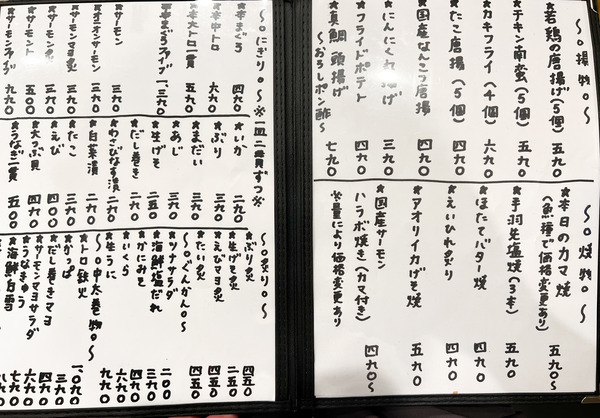 ～揚物～
★若鶏の唐揚げ(5個) 五九〇
★チキン南蛮(5個) 五九〇
★カキフライ(4個) 六九〇
★たこ唐揚(5個) 四九〇
★国産なんこつ唐揚 四九〇
★にんにく揚げ 三九〇
★フライドポテト 四九〇
★真鯛頭揚げ
～おろしポン酢～ 七九〇
～焼物～
★本日のカマ焼 五九〇～
(魚種で価格変更あり)
★手羽先塩焼(3本) 五九〇
★ほたてバター焼 四九〇
★えいひれ炙り 四九〇
★アオリイカげそ焼 五九〇
★国産サーモン
ハラボ焼き(カマ付き) 四九〇～
※量により価格変更あり
～にぎり～※一皿二貫ずつ※
★本まぐろ 四九〇
★本中トロ 六九〇
★本大トロ一貫 五九〇
★サーモン 三九〇
★オニオンサーモン 三九〇
★サーモンマヨ炙 三九〇
★サーモン炙
★サーモントロ 五〇〇
★いか 二九〇
★ぶり
★まだい
★あじ 三九〇
★生げそ 二五〇
★だし巻き 二九〇
★わさびなす漬 二九〇
★白菜漬
★たこ
★えび
★大つぶ貝
★うなぎ一貫 五五〇
～炙り～
★ぶり炙 四五〇
★生げそ炙 二五〇
★えびマヨ炙 四五〇
★たい炙 四五〇
～ぐんかん～
★ツナサラダ 二〇〇
★海鮮塩だれ 三九〇
★かにみそ 四九〇
★いくら 六九〇
★生うに 九九〇
～中太巻物～
★かっぱ
★だし巻きマヨ
★サーモンマヨサラダ
★うなきゅう
★海鮮白雪